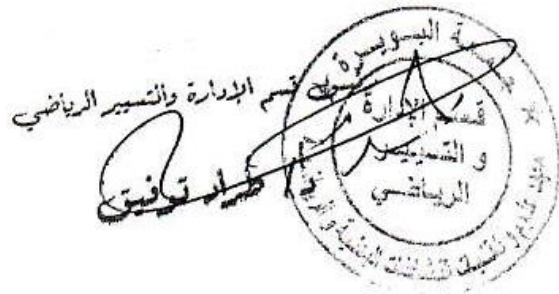 قسم الإدارة والتسيير الرياضي
توفيق
جامعة البويرة
قسم الإدارة
و التسيير
الرياضي
معهد علوم و تقنيات النشاطات البدنية و الرياضية